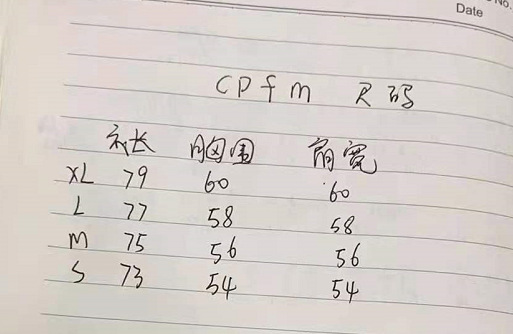 No.
Date
CPfm 尺码
衣长 胸围 肩宽
XL 79 60 60
L 77 58 58
M 75 56 56
S 73 54 54